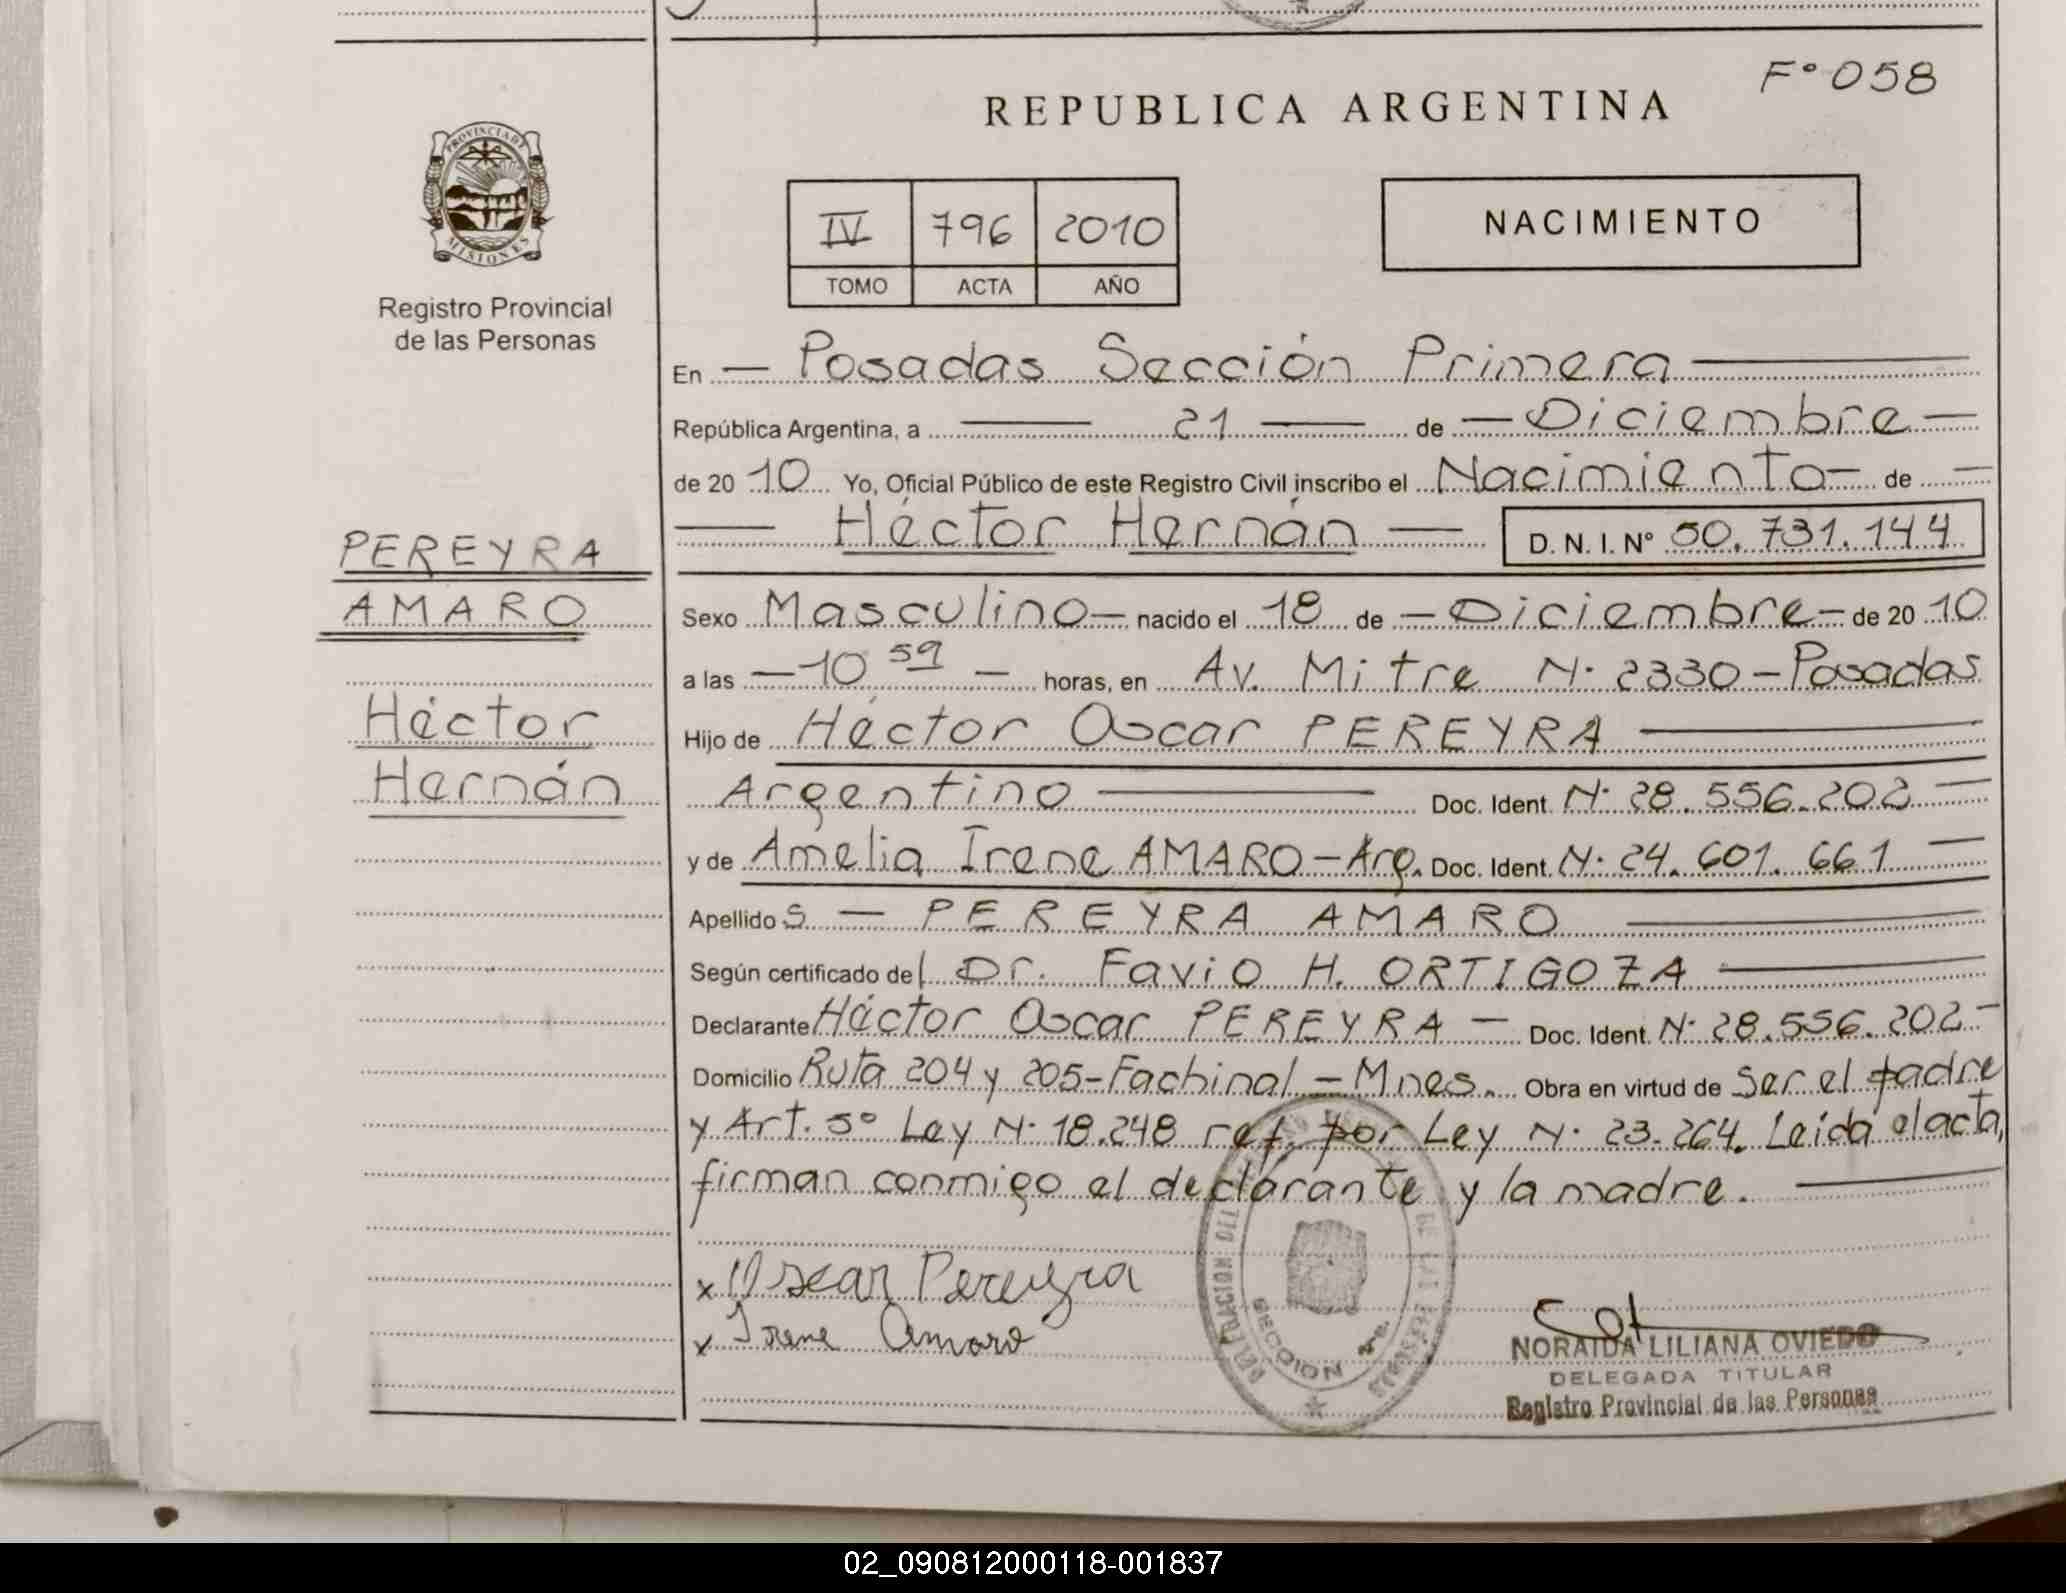 F° 058
REPUBLICA ARGENTINA
PROVINCIA DE
MISIONES
Registro Provincial
de las Personas
IV 796 2010
TOMO ACTA AÑO
NACIMIENTO
En — Posadas Sección Primera —
República Argentina, a — 21 — de — Diciembre —
de 20 10 Yo, Oficial Público de este Registro Civil inscribo el Nacimiento — de —
— Héctor Hernán — D. N. I. N° 50.731.144
PEREYRA
AMARO
Héctor
Hernán
Sexo Masculino — nacido el 18 de — Diciembre — de 20 10
a las — 10 59 — horas, en Av. Mitre N· 2330 - Posadas
Hijo de Héctor Oscar PEREYRA —
Argentino — Doc. Ident. N· 28.556.202 —
y de Amelia Irene AMARO - Arg. Doc. Ident. N· 24.601.661 —
Apellido s — PEREYRA AMARO —
Según certificado del Dr. Favio H. ORTIGOZA —
Declarante Héctor Oscar PEREYRA — Doc. Ident. N· 28.556.202 —
Domicilio Ruta 204 y 205 - Fachinal - Mnes. Obra en virtud de Ser el padre
y Art. 5° Ley N· 18.248 ref. por Ley N· 23.264. Leída el acta,
firman conmigo el declarante y la madre. —
x Oscar Pereyra
x Irene Amaro
SECCION
NORAIDA LILIANA OVIEDO
DELEGADA TITULAR
Registro Provincial de las Personas
02_090812000118-001837